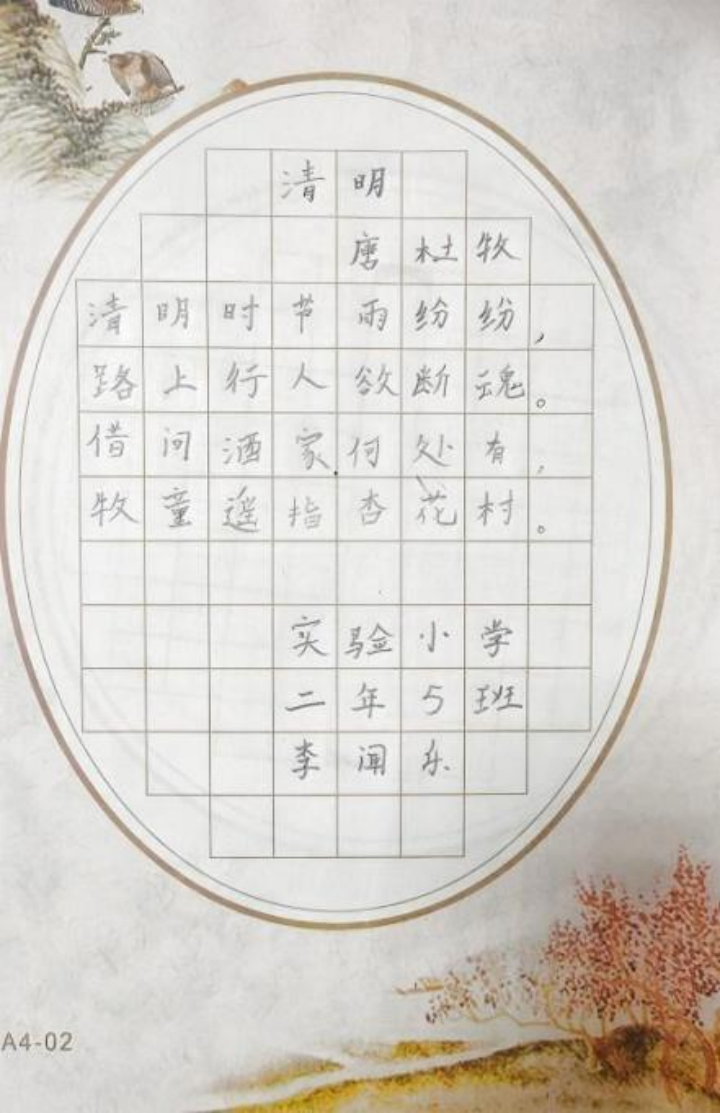 清明
唐杜牧
清明时节雨纷纷，
路上行人欲断魂。
借问酒家何处有，
牧童遥指杏花村。
实验小学
二年5班
李闻乐
A4-02